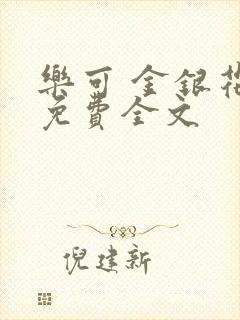 樂可 金銀花
免費全文
倪建新